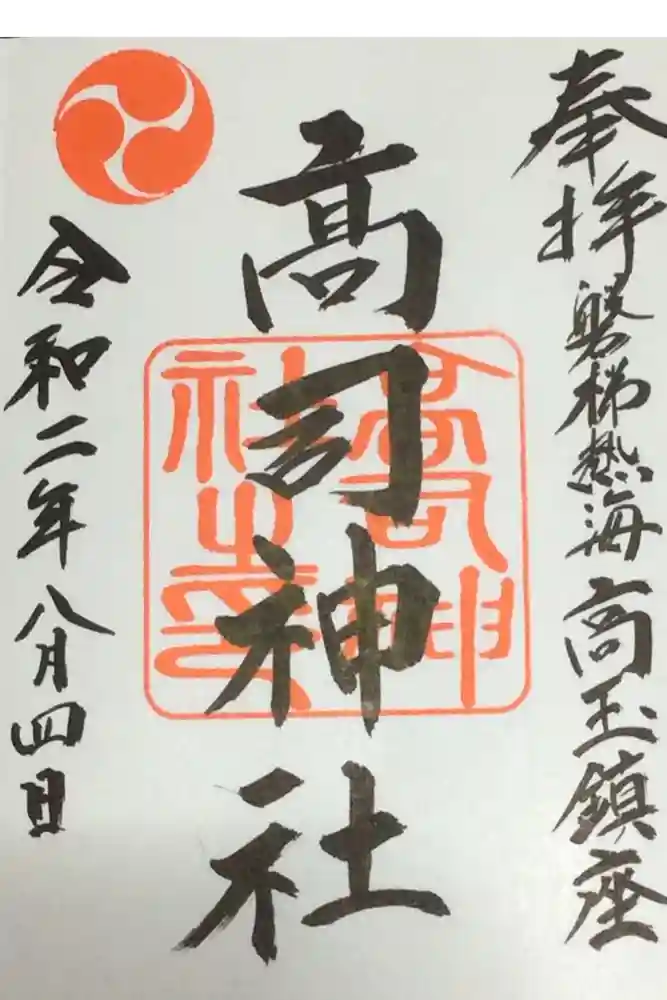 奉拝 磐梯熱海 高玉鎮座
髙司神社
高司神社之印
令和二年八月四日